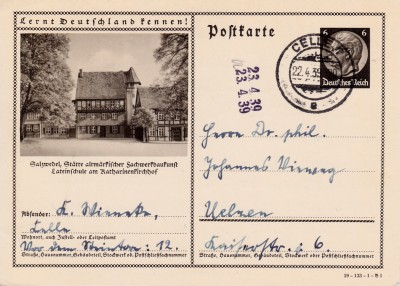 Lernt Deutschland kennen!
Postkarte
6 6
Deutsches Reich
CELLE
22.4.39
23.4.39
23.4.39
Salzwedel, Stätte altmärkischer Fachwerkbaukunst
Lateinschule am Katharinenkirchhof
Absender: K. Wieneke,
Celle
Wohnort, auch Zustell- oder Leitpostamt
Vor dem Steintor: 12.
Straße, Hausnummer, Gebäudeteil, Stockwerk od. Postschließfachnummer
Herrn Dr. phil.
Johannes Vieweg
Uelzen
Kaiserstr. 6.
Straße, Hausnummer, Gebäudeteil, Stockwerk od. Postschließfachnummer
39-123-1-B1